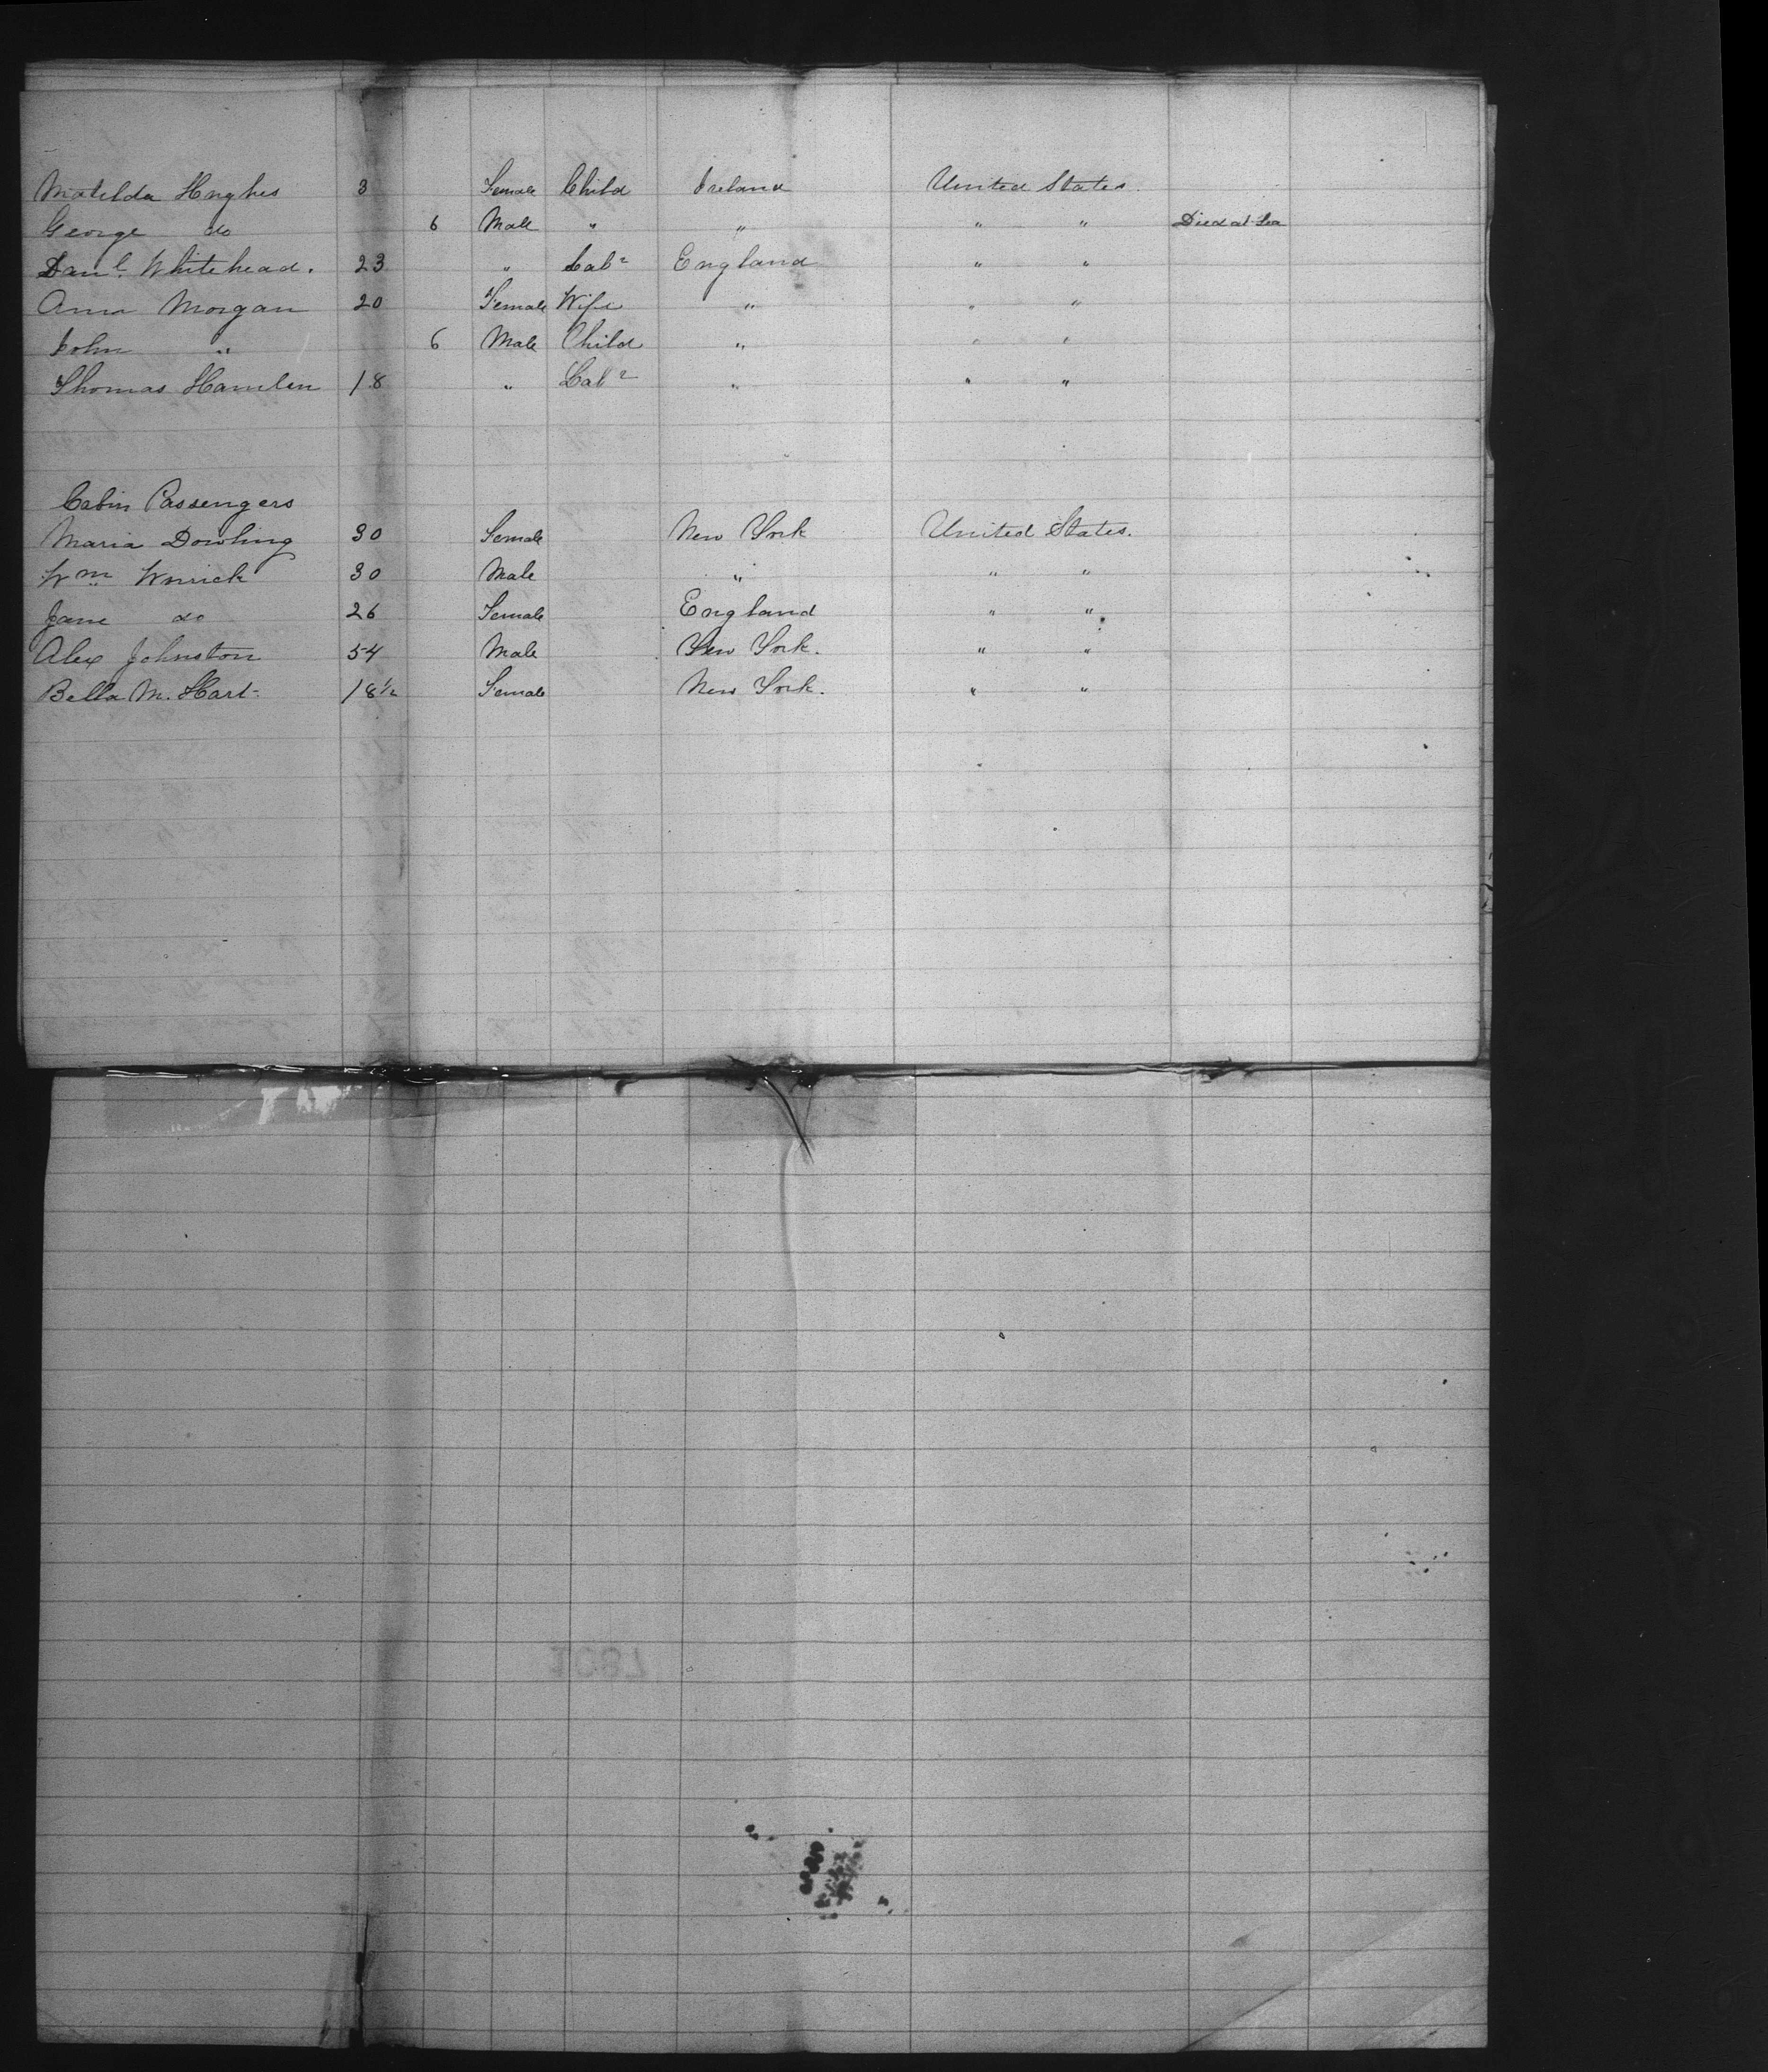 Matilda Hughes 3 Female Child Ireland United States.
George do 6 Male " " " " Died at Sea
Danl. Whitehead. 23 " Labr England " "
Ann Morgan 20 Female Wife " " "
John " 6 Male Child " " "
Thomas Hamlin 18 " Labr " " "
Cabin Passengers
Maria Dowling 30 Female New York United States.
Wm 30 Male " " "
Jane do 26 Female England " "
Alex Johnston 54 Male New York. " "
Bella M. Hart 18½ Female New York. " "